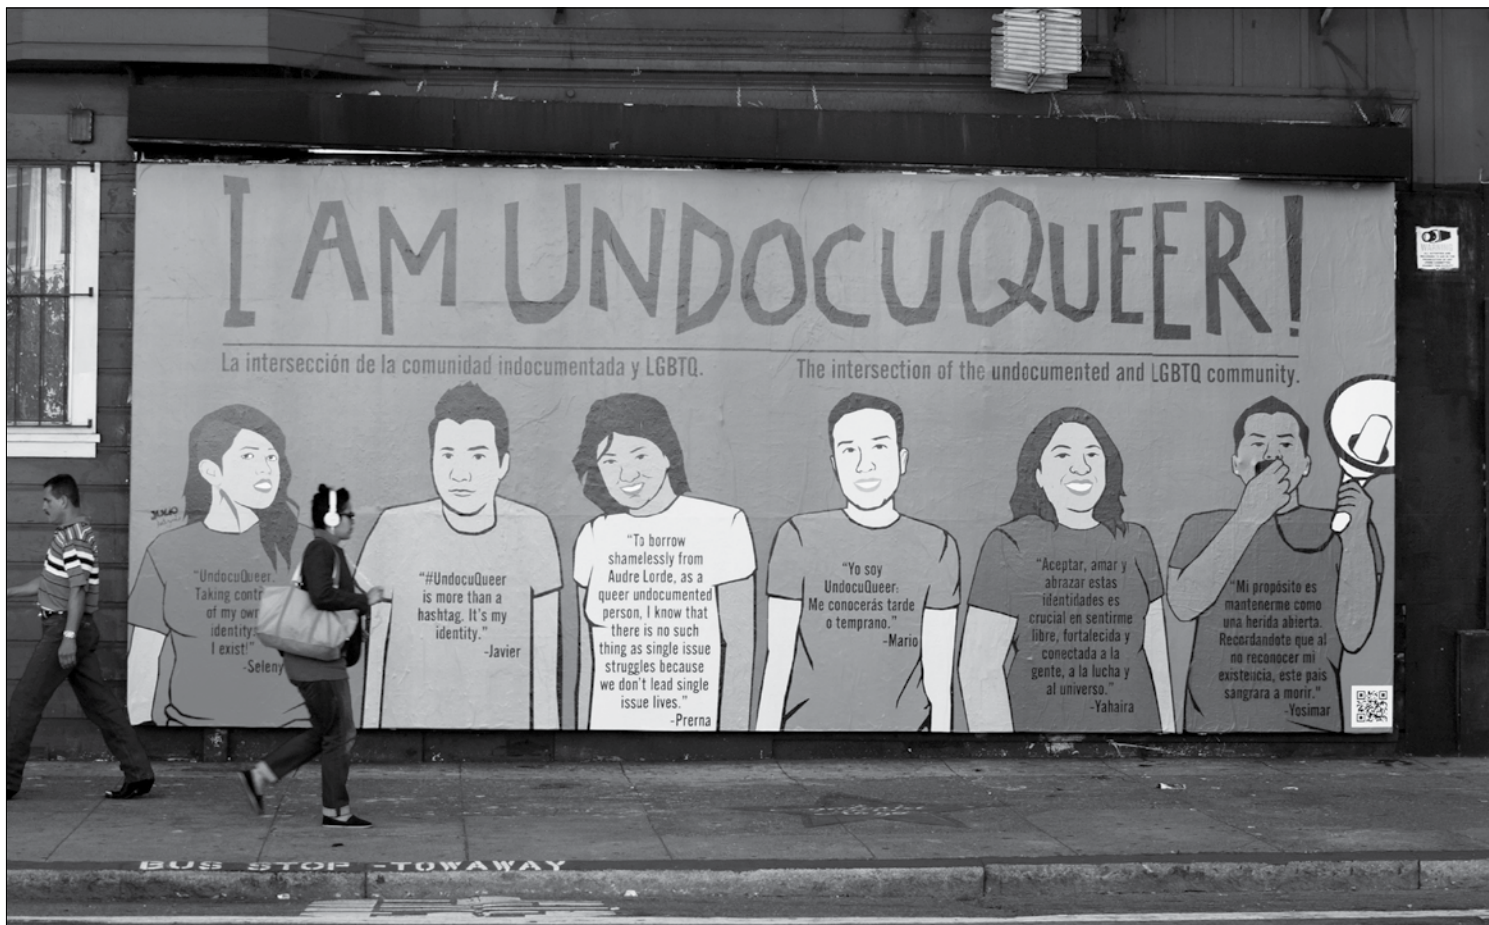 I AM UNDOCUQUEER!
La intersección de la comunidad indocumentada y LGBTQ.
The intersection of the undocumented and LGBTQ community.
JULIO
“UndocuQueer.
Taking
of my own
identity.
I exist!”
-Seleny
“#UndocuQueer
is more than a
hashtag. It's my
identity.”
-Javier
“To borrow
shamelessly from
Audre Lorde, as a
queer undocumented
person, I know that
there is no such
thing as single issue
struggles because
we don't lead single
issue lives.”
-Prerna
“Yo soy
UndocuQueer:
Me conocerás tarde
o temprano.”
-Mario
“Aceptar, amar y
abrazar estas
identidades es
crucial en sentirme
libre, fortalecida y
conectada a la
gente, a la lucha y
al universo.”
-Yahaira
“Mi propósito es
mantenerme como
una herida abierta.
Recordandote que al
no reconocer mi
existencia, este pais
sangrara a morir.”
-Yosimar
BUS STOP -TOWAWAY